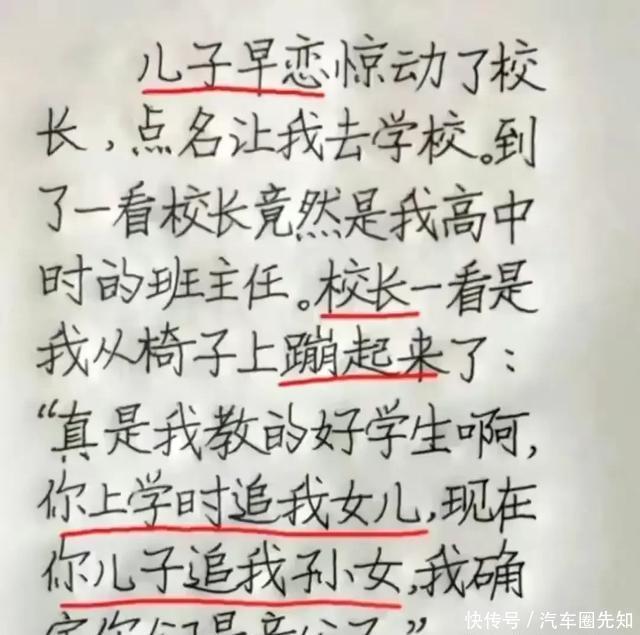 儿子早恋惊动了校
长，点名让我去学校。到
了一看校长竟然是我高中
时的班主任。校长一看是
我从椅子上蹦起来了：
“真是我教的好学生啊，
你上学时追我女儿，现在
你儿子追我孙女，我确
快传号／汽车圈先知